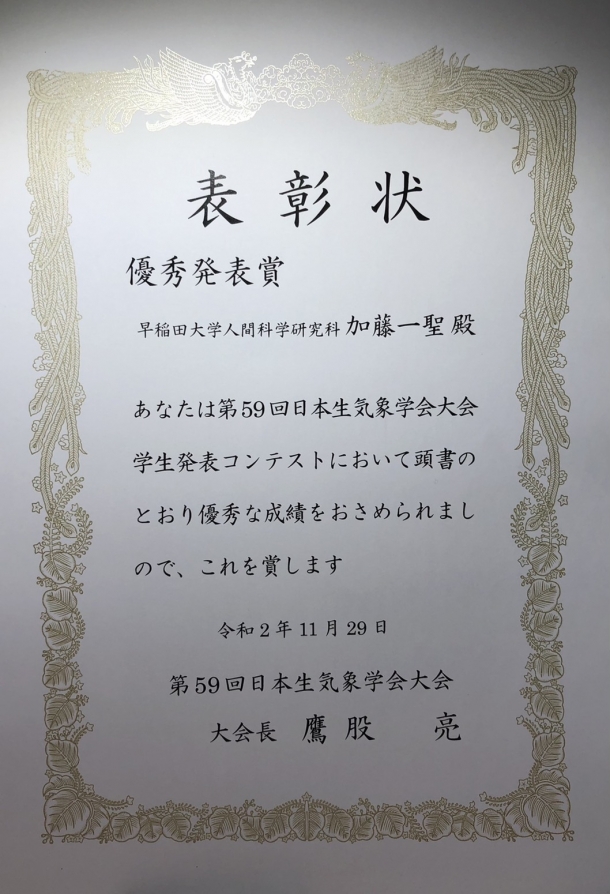 表彰状
優秀発表賞
早稲田大学人間科学研究科 加藤一聖 殿
あなたは第59回日本生気象学会大会
学生発表コンテストにおいて頭書の
とおり優秀な成績をおさめられまし
ので、これを賞します
令和2年11月29日
第59回日本生気象学会大会
大会長 鷹股 亮